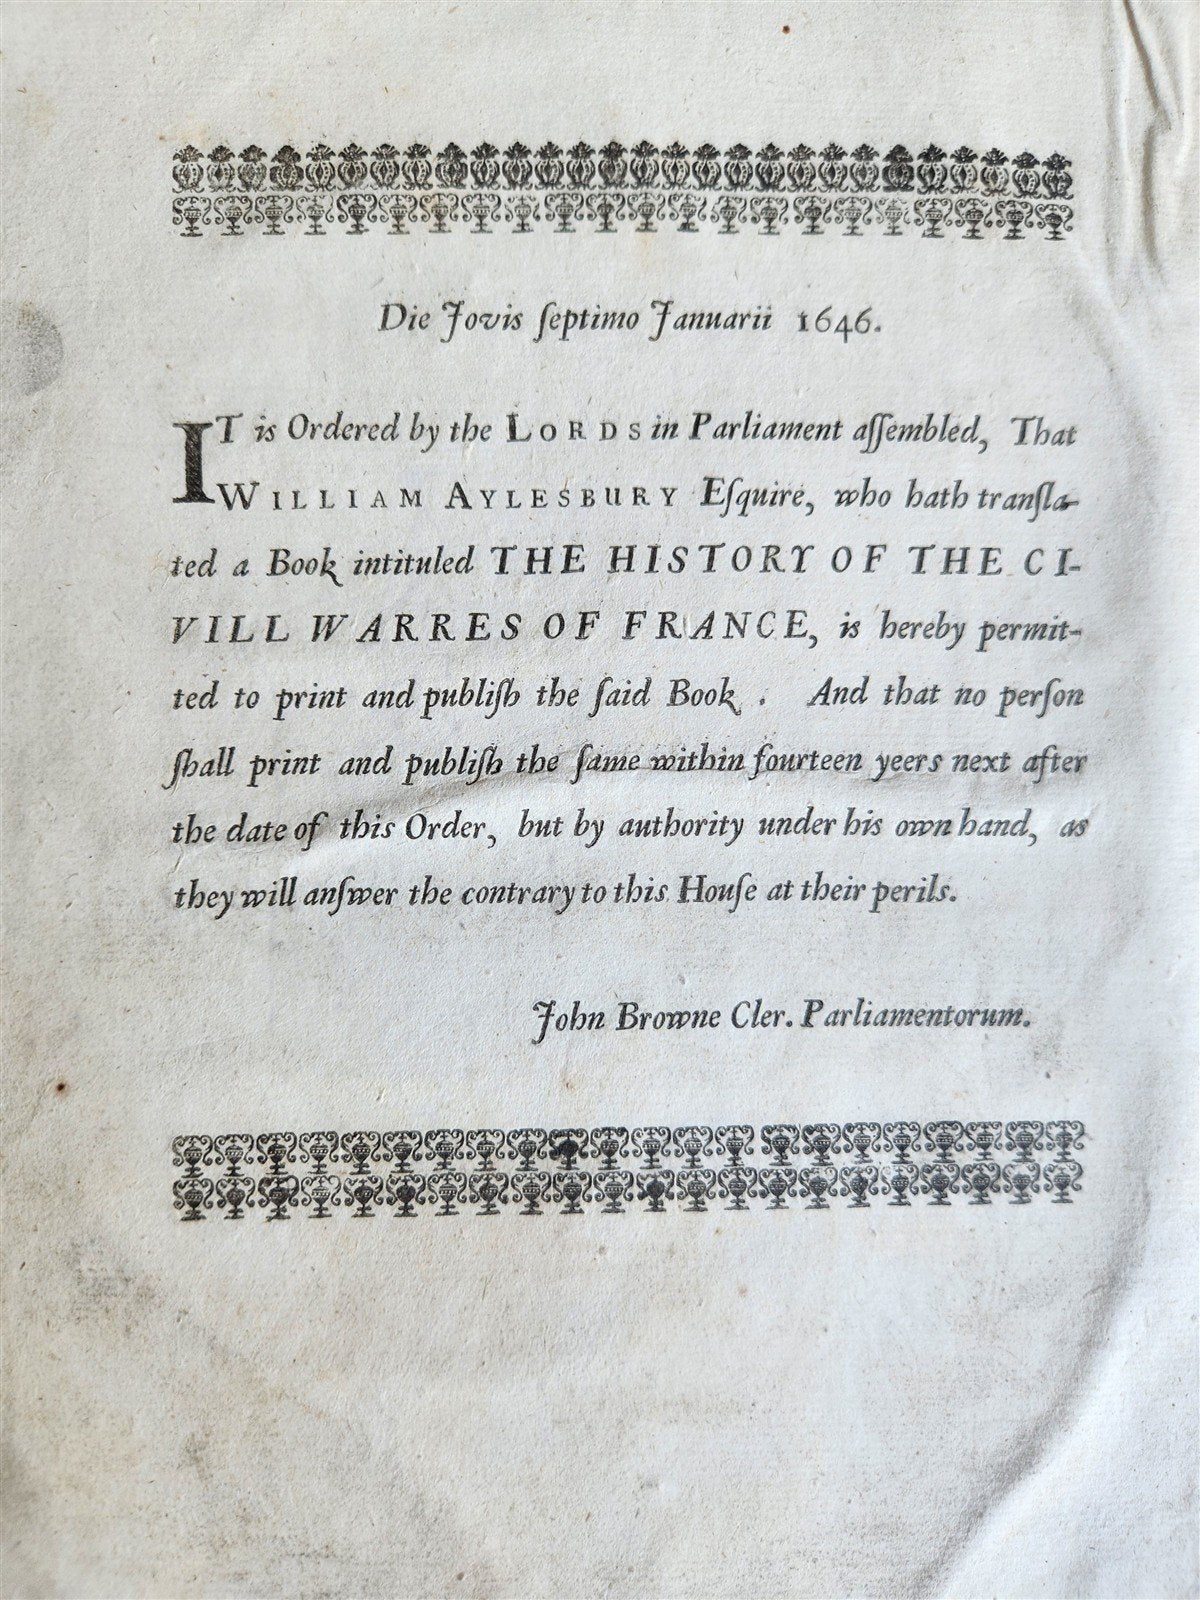 Die Jovis ſeptimo Januarii 1646.
IT is Ordered by the LORDS in Parliament aſſembled, That
WILLIAM AYLESBURY Eſquire, who hath tranſla-
ted a Book intituled THE HISTORY OF THE CI-
VILL WARRES OF FRANCE, is hereby permit-
ted to print and publiſh the ſaid Book . And that no perſon
ſhall print and publiſh the ſame within fourteen yeers next after
the date of this Order, but by authority under his own hand, as
they will anſwer the contrary to this Houſe at their perils.
John Browne Cler. Parliamentorum.